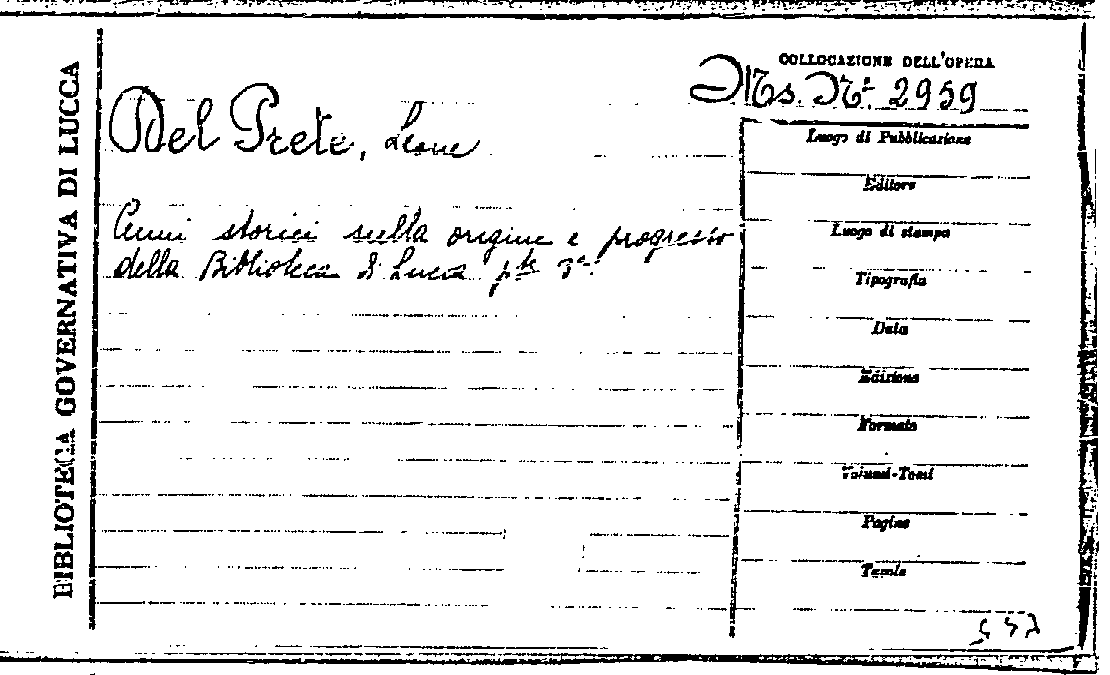 BIBLIOTECA GOVERNATIVA DI LUCCA
COLLOCAZIONE DELL'OPERA
Ms. N.º 2959
Del Prete, Leone
Cenni storici sulla origine e progresso
della Biblioteca di Lucca pte 3ª
Luogo di Pubblicazione
Editore
Luogo di stampa
Tipografia
Data
Edizione
Formato
Volumi-Tomi
Pagine
Tavole